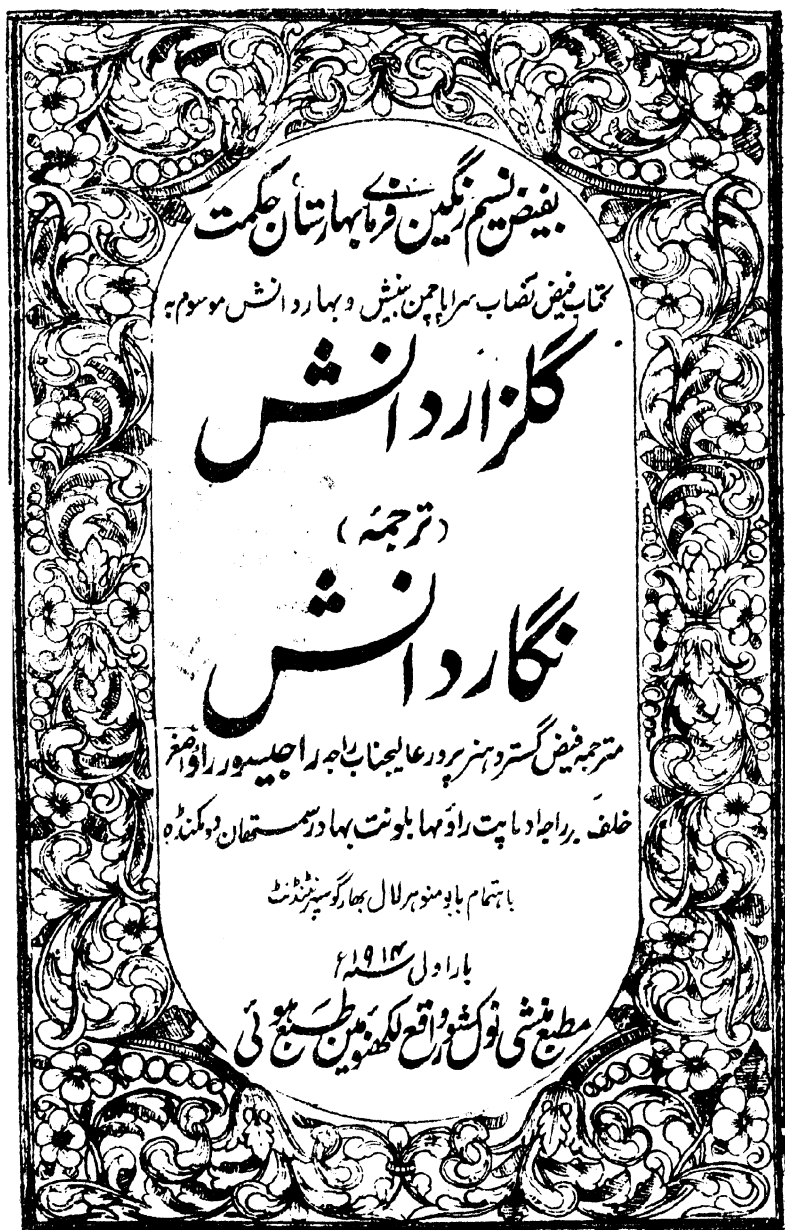 بفیض نسیم رنگین فرمای بہارستان حکمت
کتاب فیض نصاب سراپا چمن بینش و بہار دانش موسوم بہ
گلزار دانش
(ترجمۂ)
نگار دانش
مترجمہ فیض گستر و ہنر پرور عالیجناب راجہ راجیسور راؤ اصغر
خلف راجہ اماپت راؤ مہا بلونت بہادر سمستھان دومکنڈہ
باہتمام بابو منوہر لال بھارگو سپرنٹنڈنٹ
بار اول سنہ ۱۹۱۴ء
مطبع منشی نولکشور واقع لکھنؤ مین طبع ہوئی